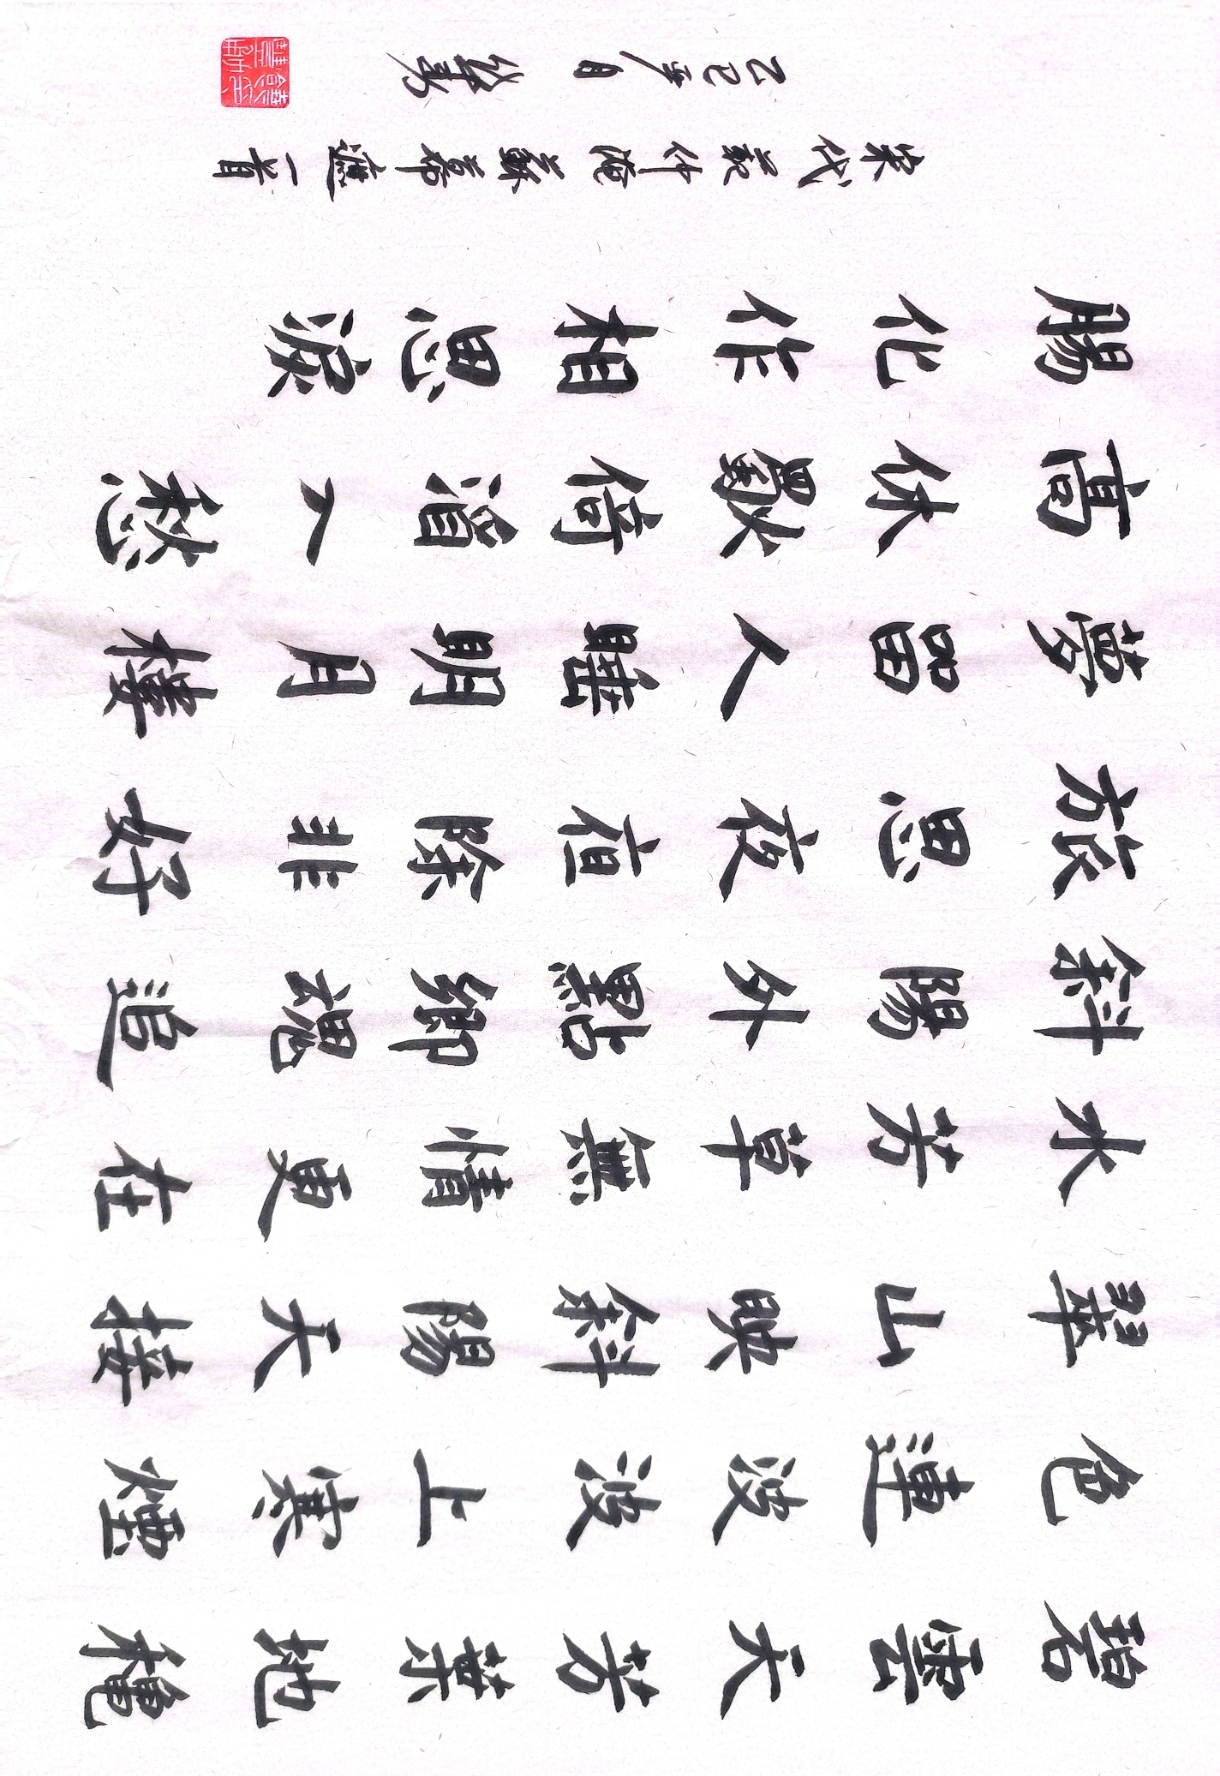 碧雲天芳葉地穐
色連波波上寒煙
翠山映斜陽天接
水芳草無情更在
斜陽外點鄉魂追
旅思夜亱除非好
夢留人睡明月樓
高休獨倚酒入愁
腸化作相思淚
宋代范仲淹蘇幕遮一首
乙巳 月